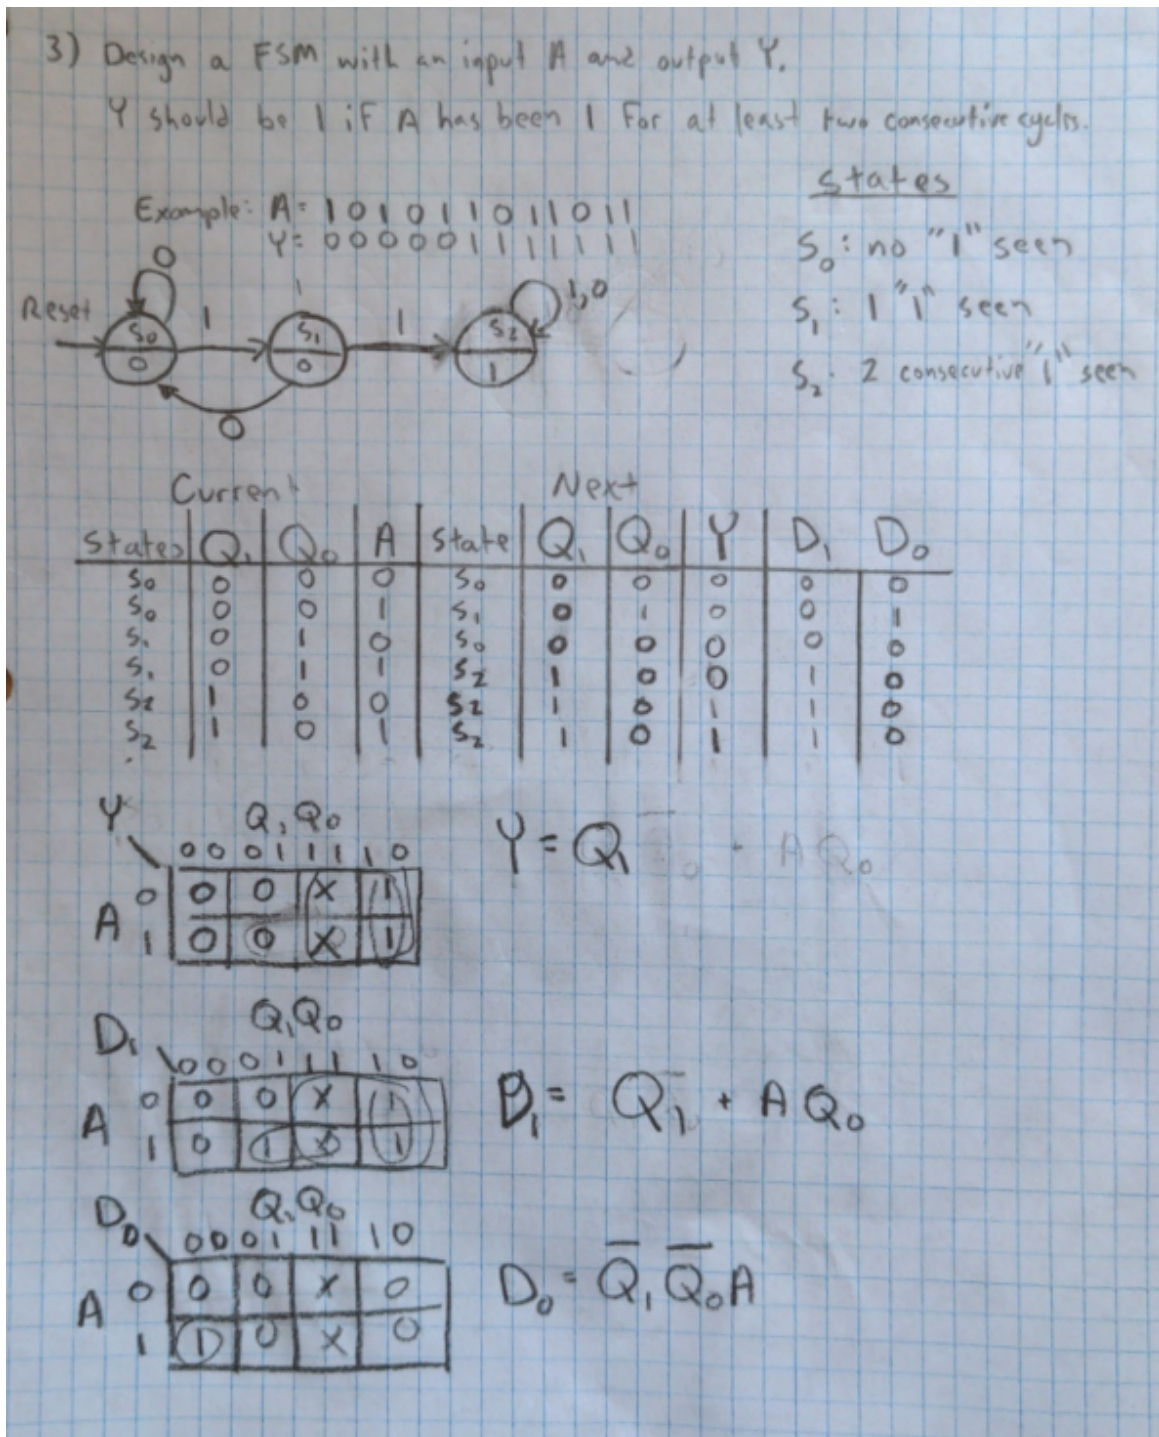 3) Design a FSM with an input A and output Y.
Y should be 1 if A has been 1 for at least two consecutive cycles.
States
Example: A= 1 0 1 0 1 1 0 1 1 0 1 1
Y= 0 0 0 0 0 1 1 1 1 1 1 1
S0: no "1" seen
S1: 1 "1" seen
S2: 2 consecutive "1" seen
Reset
0
1
1
1,0
S0
0
S1
0
S2
1
0
Current Next
States Q1 Q0 A State Q1 Q0 Y D1 D0
S0 0 0 0 S0 0 0 0 0 0
S0 0 0 1 S1 0 1 0 0 1
S1 0 1 0 S0 0 0 0 0 0
S1 0 1 1 S2 1 0 0 1 0
S2 1 0 0 S2 1 0 1 1 0
S2 1 0 1 S2 1 0 1 1 0
Y Q1Q0
00 01 11 10
A 0 0 0 X 1
1 0 0 X 1
Y = Q1
D1 Q1Q0
00 01 11 10
A 0 0 0 X 1
1 0 1 X 1
D1 = Q1 + A Q0
D0 Q1Q0
00 01 11 10
A 0 0 0 X 0
1 1 0 X 0
D0 = Q̅1 Q̅0 A